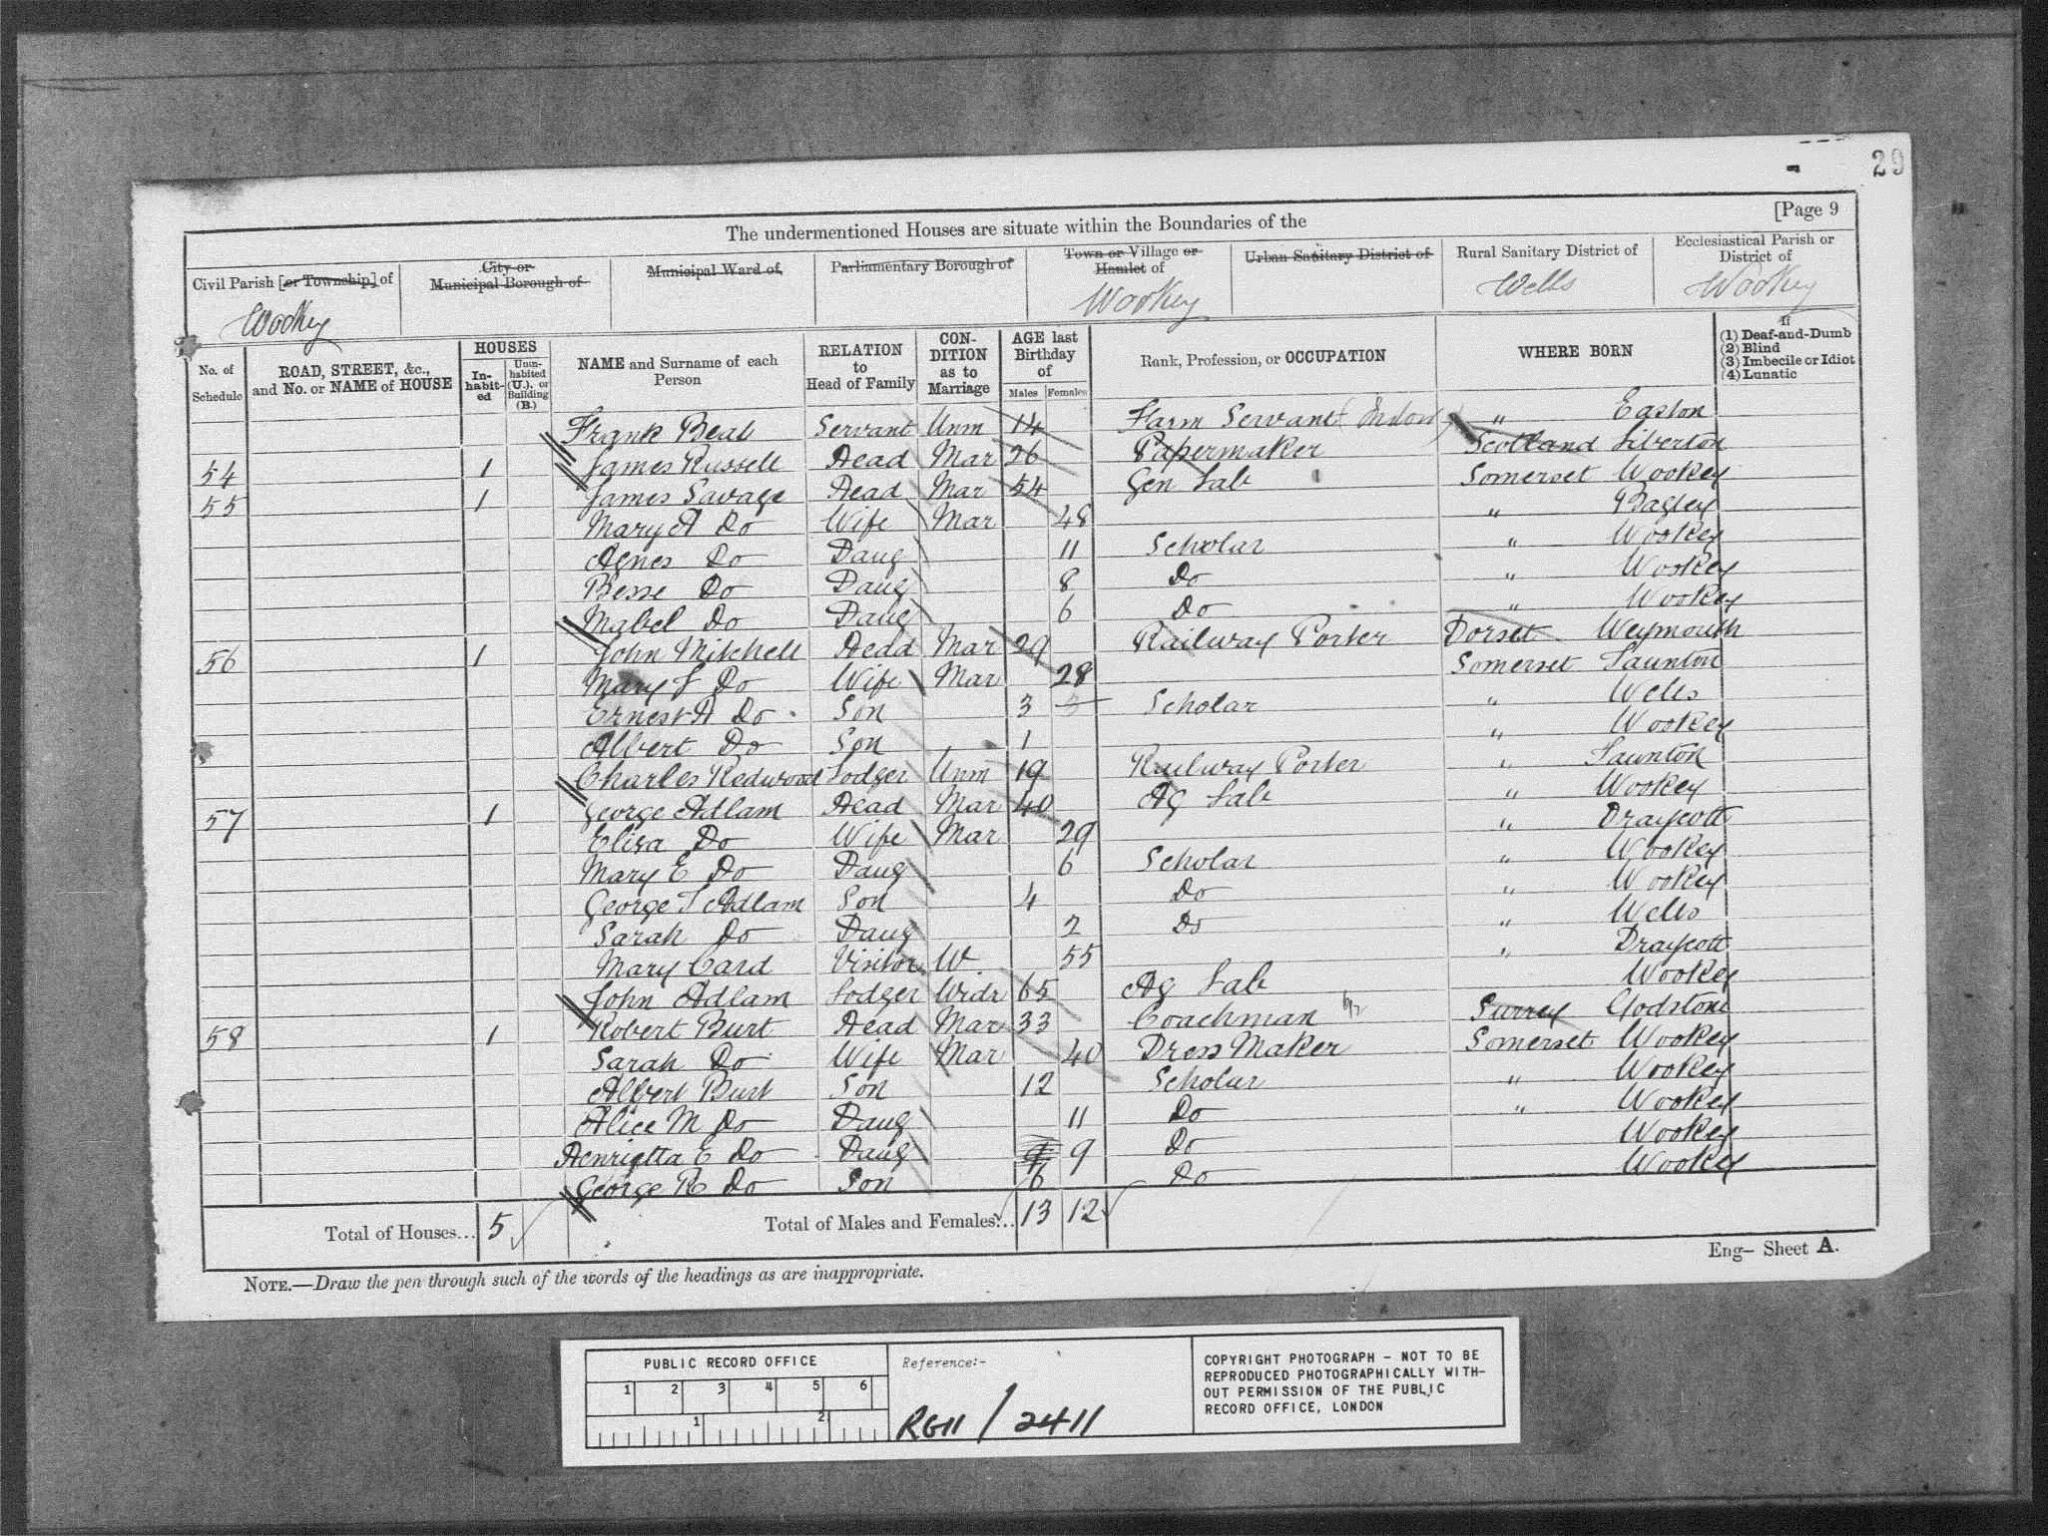 29
[Page 9
The undermentioned Houses are situate within the Boundaries of the
Civil Parish [or Township,] of
City or Municipal Borough of
Municipal Ward of,
Parliamentary Borough of
Town or Village or Hamlet of
Urban Sanitary District of
Rural Sanitary District of
Ecclesiastical Parish or District of
Wookey Wookey Wells Wookey
No. of Schedule
ROAD, STREET, &c., and No. or NAME of HOUSE
HOUSES
In-habit-ed
Unin-habited (U.), or Building (B.)
NAME and Surname of each Person
RELATION to Head of Family
CON-DITION as to Marriage
AGE last Birthday of
Males Females
Rank, Profession, or OCCUPATION
WHERE BORN
If
(1) Deaf-and-Dumb
(2) Blind
(3) Imbecile or Idiot
(4) Lunatic
Frank Beal Servant Unm 14 Farm Servant (Indoor) " Easton
54 1 James Russell Head Mar 26 Papermaker Scotland Liberton
55 1 James Savage Head Mar 54 Gen Lab Somerset Wookey
Mary A Do Wife Mar 48 " Bagley
Agnes Do Daug 11 Scholar " Wookey
Besse Do Daug 8 Do " Wookey
Mabel Do Daug 6 Do " Wookey
56 1 John Mitchell Head Mar 29 Railway Porter Dorset Weymouth
Mary Do Wife Mar 28 Somerset Taunton
Ernest A Do Son 3 3 Scholar " Wells
Albert Do Son 1 " Wookey
Charles Redwood Lodger Unm 19 Railway Porter " Taunton
57 1 George Adlam Head Mar 40 Ag Lab " Wookey
Eliza Do Wife Mar 29 " Draycott
Mary E Do Daug 6 Scholar " Wookey
George Adlam Son 4 Do " Wookey
Sarah Do Daug 2 Do " Wells
Mary Card Visitor W 55 " Draycott
John Adlam Lodger Widr 65 Ag Lab Wookey
58 1 Robert Burt Head Mar 33 Coachman Surrey Godstone
Sarah Do Wife Mar 40 Dress Maker Somerset Wookey
Albert Burt Son 12 Scholar " Wookey
Alice M Do Daug 11 Do " Wookey
Henrietta E Do Daug 9 Do Wookey
George R Do Son 6 Do Wookey
Total of Houses... 5 Total of Males and Females... 13 12
Eng- Sheet A.
NOTE.—Draw the pen through such of the words of the headings as are inappropriate.
PUBLIC RECORD OFFICE
1 2 3 4 5 6
1 2
Reference:-
RG11 / 2411
COPYRIGHT PHOTOGRAPH - NOT TO BE
REPRODUCED PHOTOGRAPHICALLY WITH-
OUT PERMISSION OF THE PUBLIC
RECORD OFFICE, LONDON